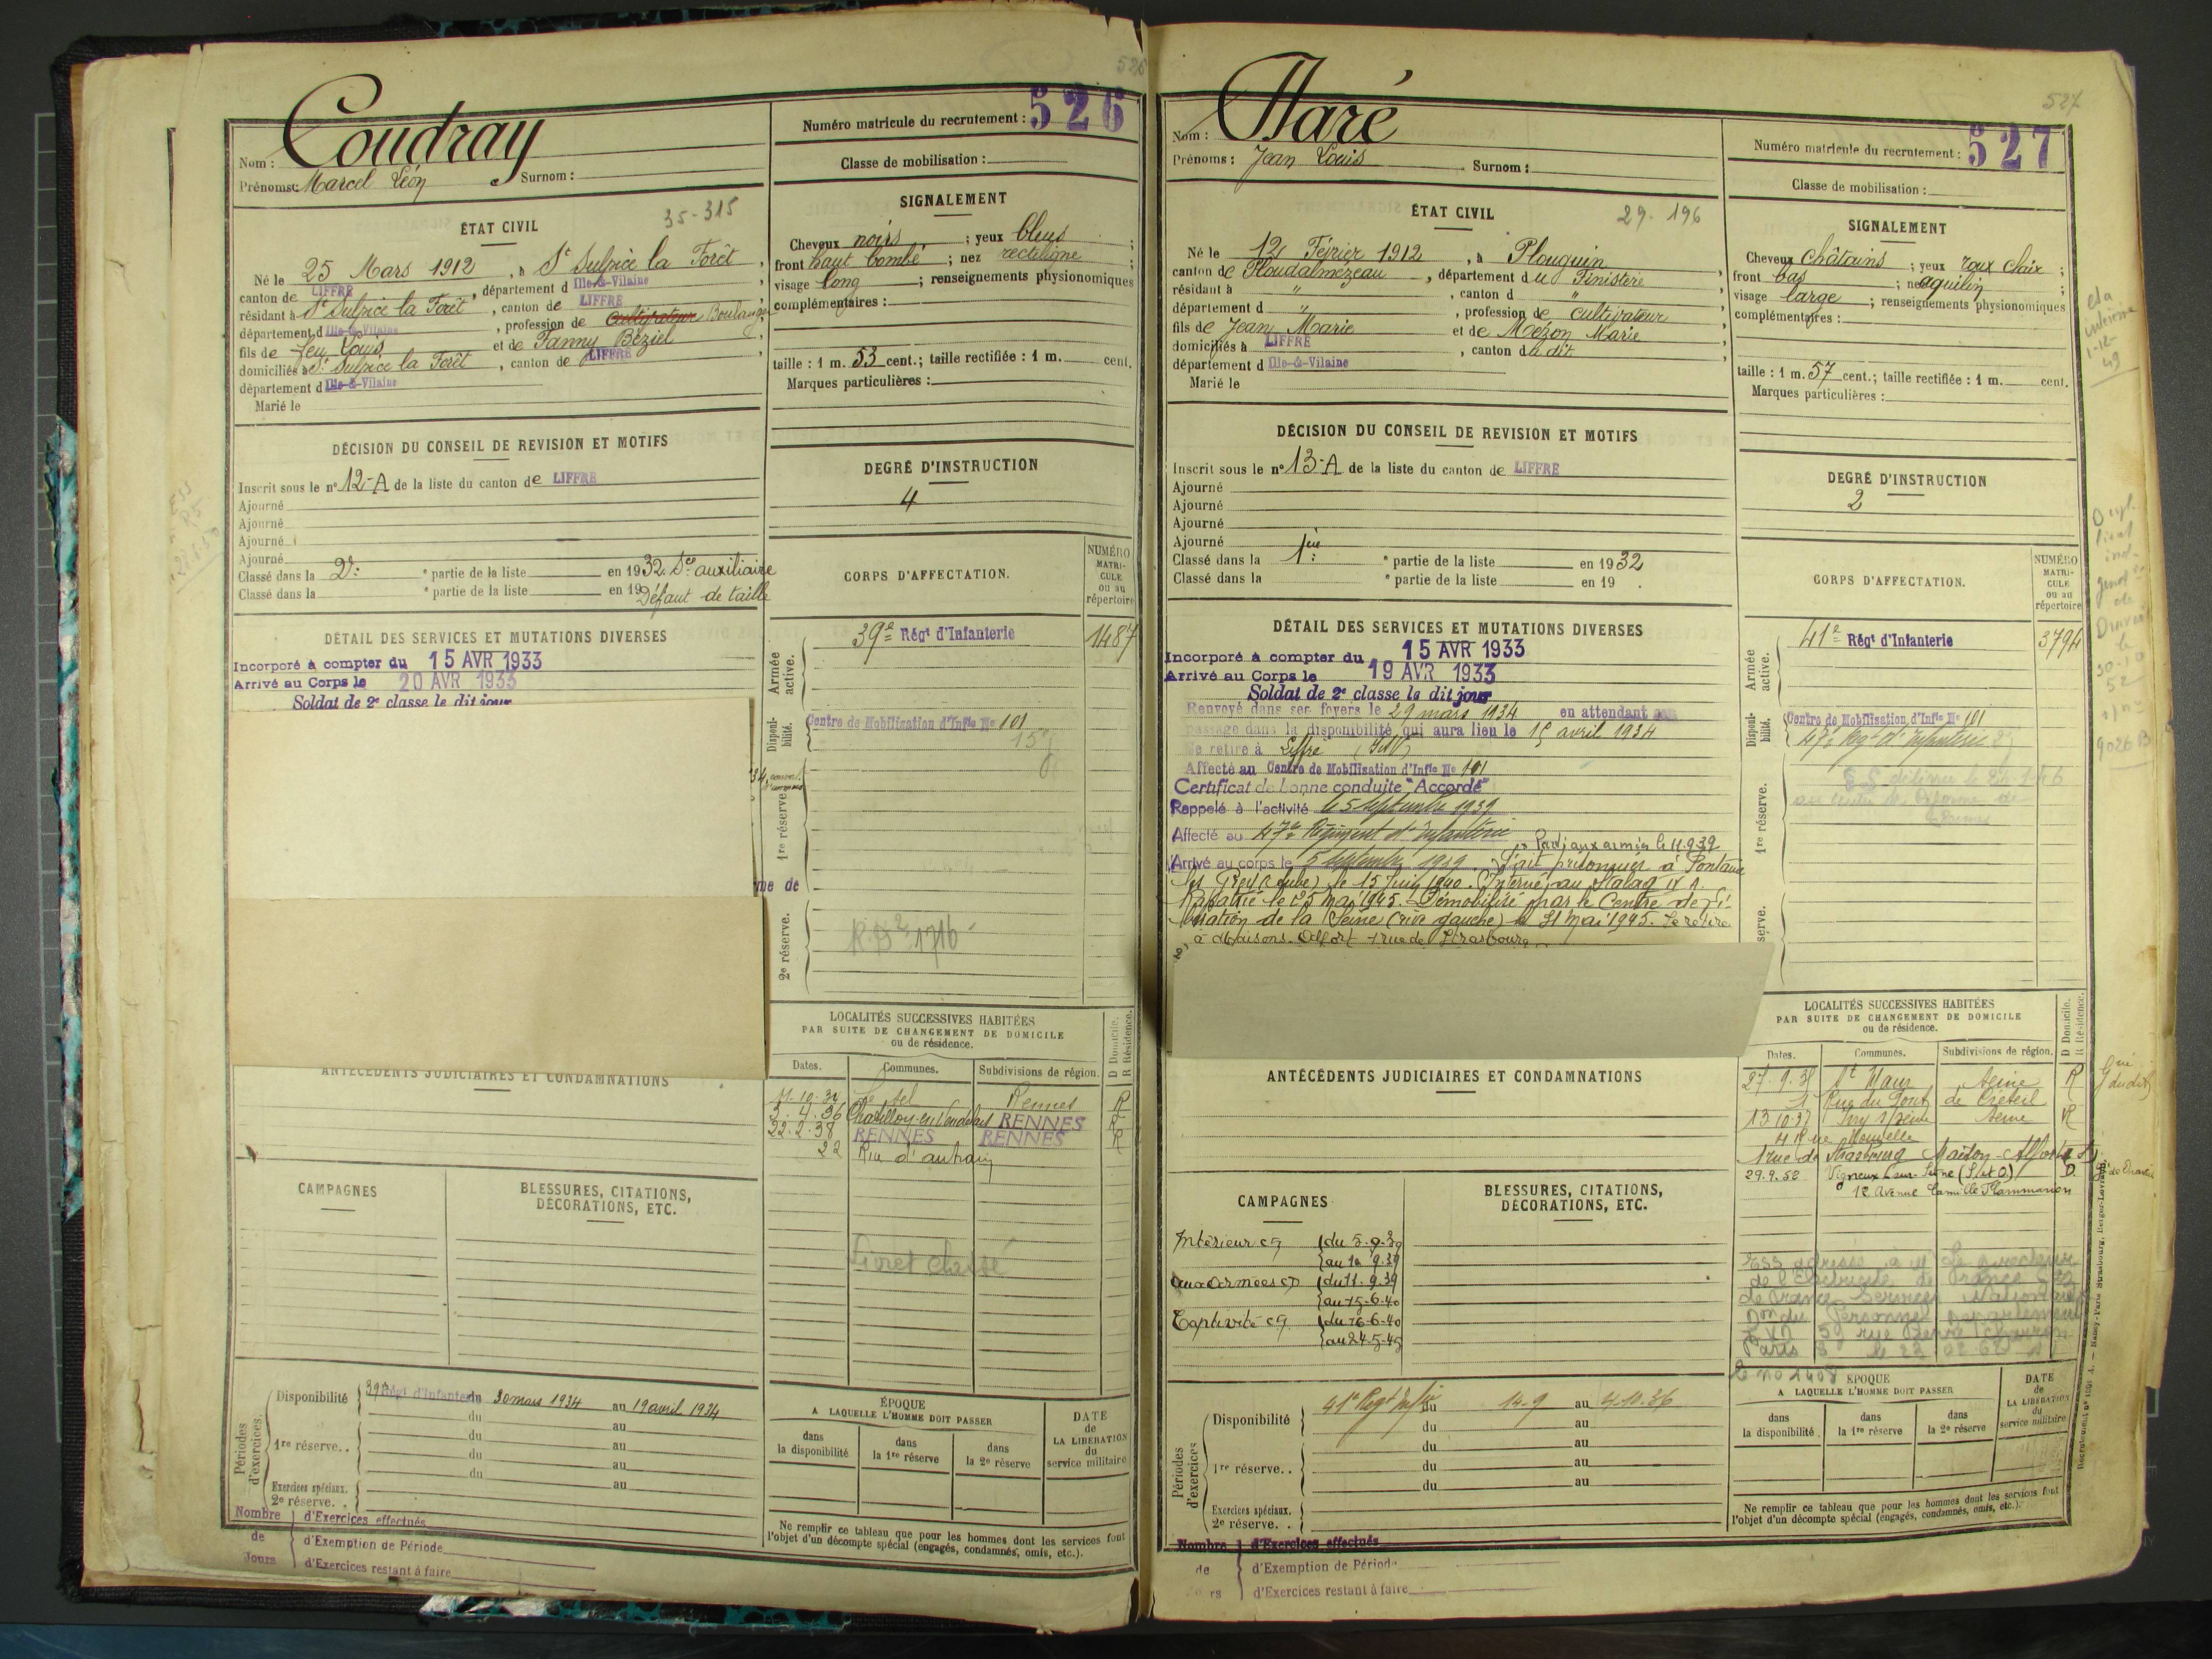 526
Nom : Coudray
Prénoms : Marcel Léon Surnom :
Numéro matricule du recrutement : 526
Classe de mobilisation :
ÉTAT CIVIL
35-315
Né le 25 Mars 1912, à St Sulpice la Forêt,
canton de LIFFRE, département d Ille-&-Vilaine
résidant à St Sulpice la Forêt, canton de LIFFRE
département d Ille-&-Vilaine, profession de cultivateur Boulanger
fils de feu Louis et de Fanny Béziel
domiciliés à St Sulpice la Forêt, canton de LIFFRE,
département d Ille-&-Vilaine
Marié le
SIGNALEMENT
Cheveux noirs ; yeux bleus ;
front haut bombé ; nez rectiligne ;
visage long ; renseignements physionomiques
complémentaires :
taille : 1 m. 53 cent.; taille rectifiée : 1 m. cent.
Marques particulières :
DÉCISION DU CONSEIL DE REVISION ET MOTIFS
Inscrit sous le n° 12-A de la liste du canton de LIFFRE
Ajourné
Ajourné
Ajourné
Ajourné
Classé dans la 2e ° partie de la liste en 1932. Sce auxiliaire
Classé dans la ° partie de la liste en 19
Défaut de taille
DEGRÉ D'INSTRUCTION
4
DÉTAIL DES SERVICES ET MUTATIONS DIVERSES
Incorporé à compter du 15 AVR 1933
Arrivé au Corps le 20 AVR 1933
Soldat de 2e classe le dit jour
CORPS D'AFFECTATION.
NUMÉRO MATRI-CULE ou au répertoire
Armée active.
39e Régt d'Infanterie 1487
Disponi-bilité.
Centre de Mobilisation d'Infie No 101
1re réserve.
me de
2e réserve.
ANTÉCÉDENTS JUDICIAIRES ET CONDAMNATIONS
LOCALITÉS SUCCESSIVES HABITÉES
PAR SUITE DE CHANGEMENT DE DOMICILE
ou de résidence.
D Domicile.
R Résidence.
Dates. Communes. Subdivisions de région.
Le Sel Rennes R
3.4.36 Chatillon-en-Vendelais RENNES R
22.2.38 RENNES RENNES R
22 Rue d'antrain
Livret classé
CAMPAGNES
BLESSURES, CITATIONS,
DÉCORATIONS, ETC.
Périodes d'exercices.
Disponibilité 39e Régt d'Infanterie du 30 mars 1934 au 19 avril 1934
du au
1re réserve.. du au
du au
du au
Exercices spéciaux. au
2e réserve. .
Nombre de Jours
d'Exercices effectués
d'Exemption de Période
d'Exercices restant à faire
ÉPOQUE
A LAQUELLE L'HOMME DOIT PASSER
dans la disponibilité
dans la 1re réserve
dans la 2e réserve
DATE de LA LIBÉRATION du service militaire
Ne remplir ce tableau que pour les hommes dont les services font
l'objet d'un décompte spécial (engagés, condamnés, omis, etc.).
527
Nom : Haré
Prénoms : Jean Louis Surnom :
Numéro matricule du recrutement : 527
Classe de mobilisation :
ÉTAT CIVIL
29. 196
Né le 12 Février 1912, à Plouguin
canton de Ploudalmezeau, département du Finistère,
résidant à ", canton d "
département d ", profession de cultivateur
fils de Jean Marie et de Mézon Marie
domiciliés à LIFFRE, canton du dit
département d Ille-&-Vilaine
Marié le
SIGNALEMENT
Cheveux châtains ; yeux roux clair ;
front bas ; nez aquilin ;
visage large ; renseignements physionomiques
complémentaires :
taille : 1 m. 57 cent.; taille rectifiée : 1 m. cent.
Marques particulières :
1-12-49
DÉCISION DU CONSEIL DE REVISION ET MOTIFS
Inscrit sous le n° 13-A de la liste du canton de LIFFRE
Ajourné
Ajourné
Ajourné
Ajourné
Classé dans la 1ère ° partie de la liste en 1932
Classé dans la ° partie de la liste en 19 .
DEGRÉ D'INSTRUCTION
2
DÉTAIL DES SERVICES ET MUTATIONS DIVERSES
Incorporé à compter du 15 AVR 1933
Arrivé au Corps le 19 AVR 1933
Soldat de 2e classe le dit jour
Renvoyé dans ses foyers le 29 mars 1934 en attendant son
passage dans la disponibilité qui aura lieu le 15 avril 1934
Se retire à Liffré (I&V)
Affecté au Centre de Mobilisation d'Infie No 101
Certificat de bonne conduite "Accordé"
Rappelé à l'activité le 5 septembre 1939
Affecté au 47e Régiment d'Infanterie
Arrivé au corps le 5 septembre 1939. Parti aux armées le 11.9.39
Fait prisonnier à Fontaine
les Grés (Aube) le 15 Juin 1940. Interné au Stalag IX A.
Rapatrié le 25 Mai 1945. Démobilisé par le Centre de Li-
bération de la Seine (rive gauche) le 31 Mai 1945. Se retire
à Maisons-Alfort 1 rue de Strasbourg
CORPS D'AFFECTATION.
NUMÉRO MATRI-CULE ou au répertoire
Armée active.
41e Régt d'Infanterie 3794
Disponi-bilité.
Centre de Mobilisation d'Infie No 101
47e Regt d'Infanterie
1re réserve.
9026 B
ANTÉCÉDENTS JUDICIAIRES ET CONDAMNATIONS
LOCALITÉS SUCCESSIVES HABITÉES
PAR SUITE DE CHANGEMENT DE DOMICILE
ou de résidence.
D Domicile.
R Résidence.
Dates. Communes. Subdivisions de région.
St Maur Seine R
Rue du Pont de Créteil
13.10.37 Ivry s/Seine Seine R
rue Nouvelle
1 rue de Strasbourg Maison-Alfort
29.9.52 Vigneux sur Seine (S. et O.) D
12 Avenue Camille Flammarion
CAMPAGNES
Intérieur CS du 5.9.39
au 10.9.39
aux Armées CD du 11.9.39
au 15-6-40
Captivité CS du 16-6-40
au 24-5-45
BLESSURES, CITATIONS,
DÉCORATIONS, ETC.
Périodes d'exercices
Disponibilité 41e Regt Infie du 14.9 au 4.10.36
du au
du au
1re réserve.. du au
du au
Exercices spéciaux.
2e réserve. .
Nombre de
d'Exercices effectués
d'Exemption de Période
d'Exercices restant à faire
ÉPOQUE
A LAQUELLE L'HOMME DOIT PASSER
dans la disponibilité
dans la 1re réserve
dans la 2e réserve
DATE de LA LIBÉRATION du service militaire
Ne remplir ce tableau que pour les hommes dont les services font
l'objet d'un décompte spécial (engagés, condamnés, omis, etc.).